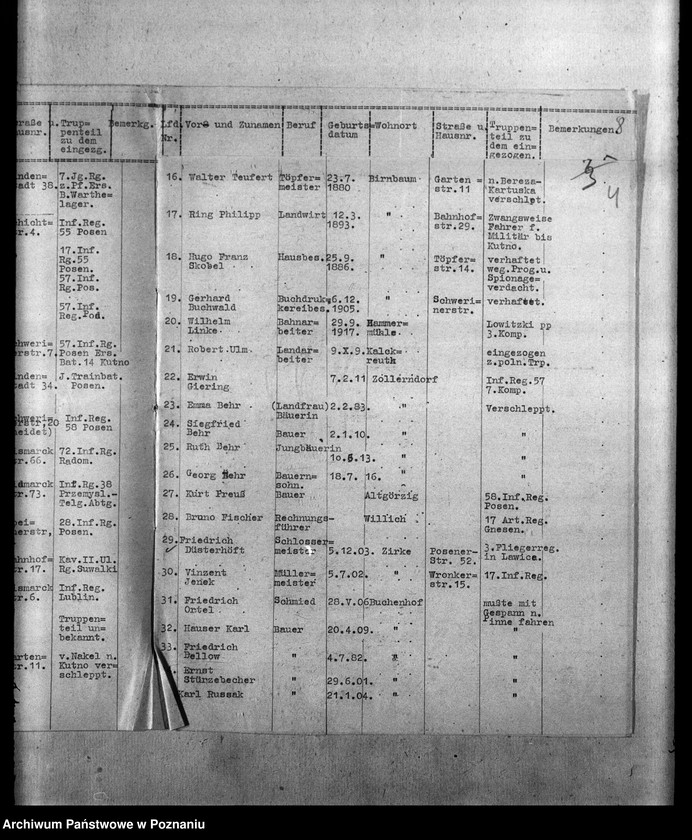 raße u. Trup= Bemerkg.
ausnr. penteil
zu dem
eingezg.
nden= 7.Jg.Rg.
adt 38. z.Pf.Ers.
B.Warthe=
lager.
hicht= Inf.Reg.
r.4. 55 Posen
17.Inf.
Rg.55
Posen.
57.Inf.
Rg.Pos.
57.Inf.
Reg.Pod.
chweri= 57.Inf.Rg.
rstr.7. Posen Ers.
Bat.14 Kutno
nden= J.Trainbat.
adt 34. Posen.
hweri= Inf.Reg.
rstr,20 58 Posen
eidet)
smarck 72.Inf.Rg.
r.66. Radom.
smarck Inf.Rg.38
r.73. Przemysl.-
Telg.Abtg.
ei= 28.Inf.Rg.
erstr, Posen.
ahnhof= Kav.II.Ul.
r.17. Rg.Suwalki
smarck Inf.Reg.
r.6. Lublin.
Truppen=
teil un=
bekannt.
arten= v.Nakel n.
r.11. Kutno ver=
schleppt.
Lfd. Vor= und Zunamen Beruf Geburts= Wohnort Straße u. Truppen= Bemerkungen 8
Nr. datum Hausnr. teil zu
dem ein=
gezogen.
16. Walter Teufert Töpfer= 23.7. Birnbaum Garten = n.Bereza-
meister 1880 str.11 Kartuska
verschlpt.
17. Ring Philipp Landwirt 12.3. " Bahnhof= Zwangsweise
1893. str.29. Fahrer f.
Militär bis
Kutno.
18. Hugo Franz Hausbes. 25.9. " Töpfer= verhaftet
Skobel 1886. str.14. weg.Prog.u.
Spionage=
verdacht.
19. Gerhard Buchdruk= 6.12. " Schweri= verhaftet.
Buchwald kereibes. 1905. nerstr.
20. Wilhelm Bahnar= 29.9. Hammer= Lowitzki pp
Linke beiter 1917. mühle 3.Komp.
21. Robert Ulm Landar= 9.X.9. Kalck= eingezogen
beiter reuth z.poln.Trp.
22. Erwin 7.2.11 Zollerndorf Inf.Reg.57
Giering 7.Komp.
23. Emma Behr (Landfrau) 2.2.83. " Verschleppt.
Bäuerin
24. Siegfried
Behr Bauer 2.1.10. " "
25. Ruth Behr Jungbäuerin
10.6.13. " "
26. Georg Behr Bauern= 18.7. 16. " "
sohn.
27. Kurt Preuß Bauer Altgörzig 58.Inf.Reg.
Posen.
28. Bruno Fischer Rechnungs= Willich 17 Art.Reg.
führer Gnesen.
29. Friedrich Schlosser=
Düsterhöft meister 5.12.03. Zirke Posener- 3.Fliegerreg.
Str. 52. in Lawica.
30. Vinzent Müller= 5.7.02. " Wronker= 17.Inf.Reg.
Jenek meister str.15.
31. Friedrich Schmied 28.V.06 Buchenhof mußte mit
Ortel Gespann n.
Pinne fahren
32. Hauser Karl Bauer 20.4.09. " "
33. Friedrich
Dellow " 4.7.82. " "
Ernst
Stürzebecher " 29.6.01. " "
Karl Russak " 21.1.04. " "
Archiwum Państwowe w Poznaniu